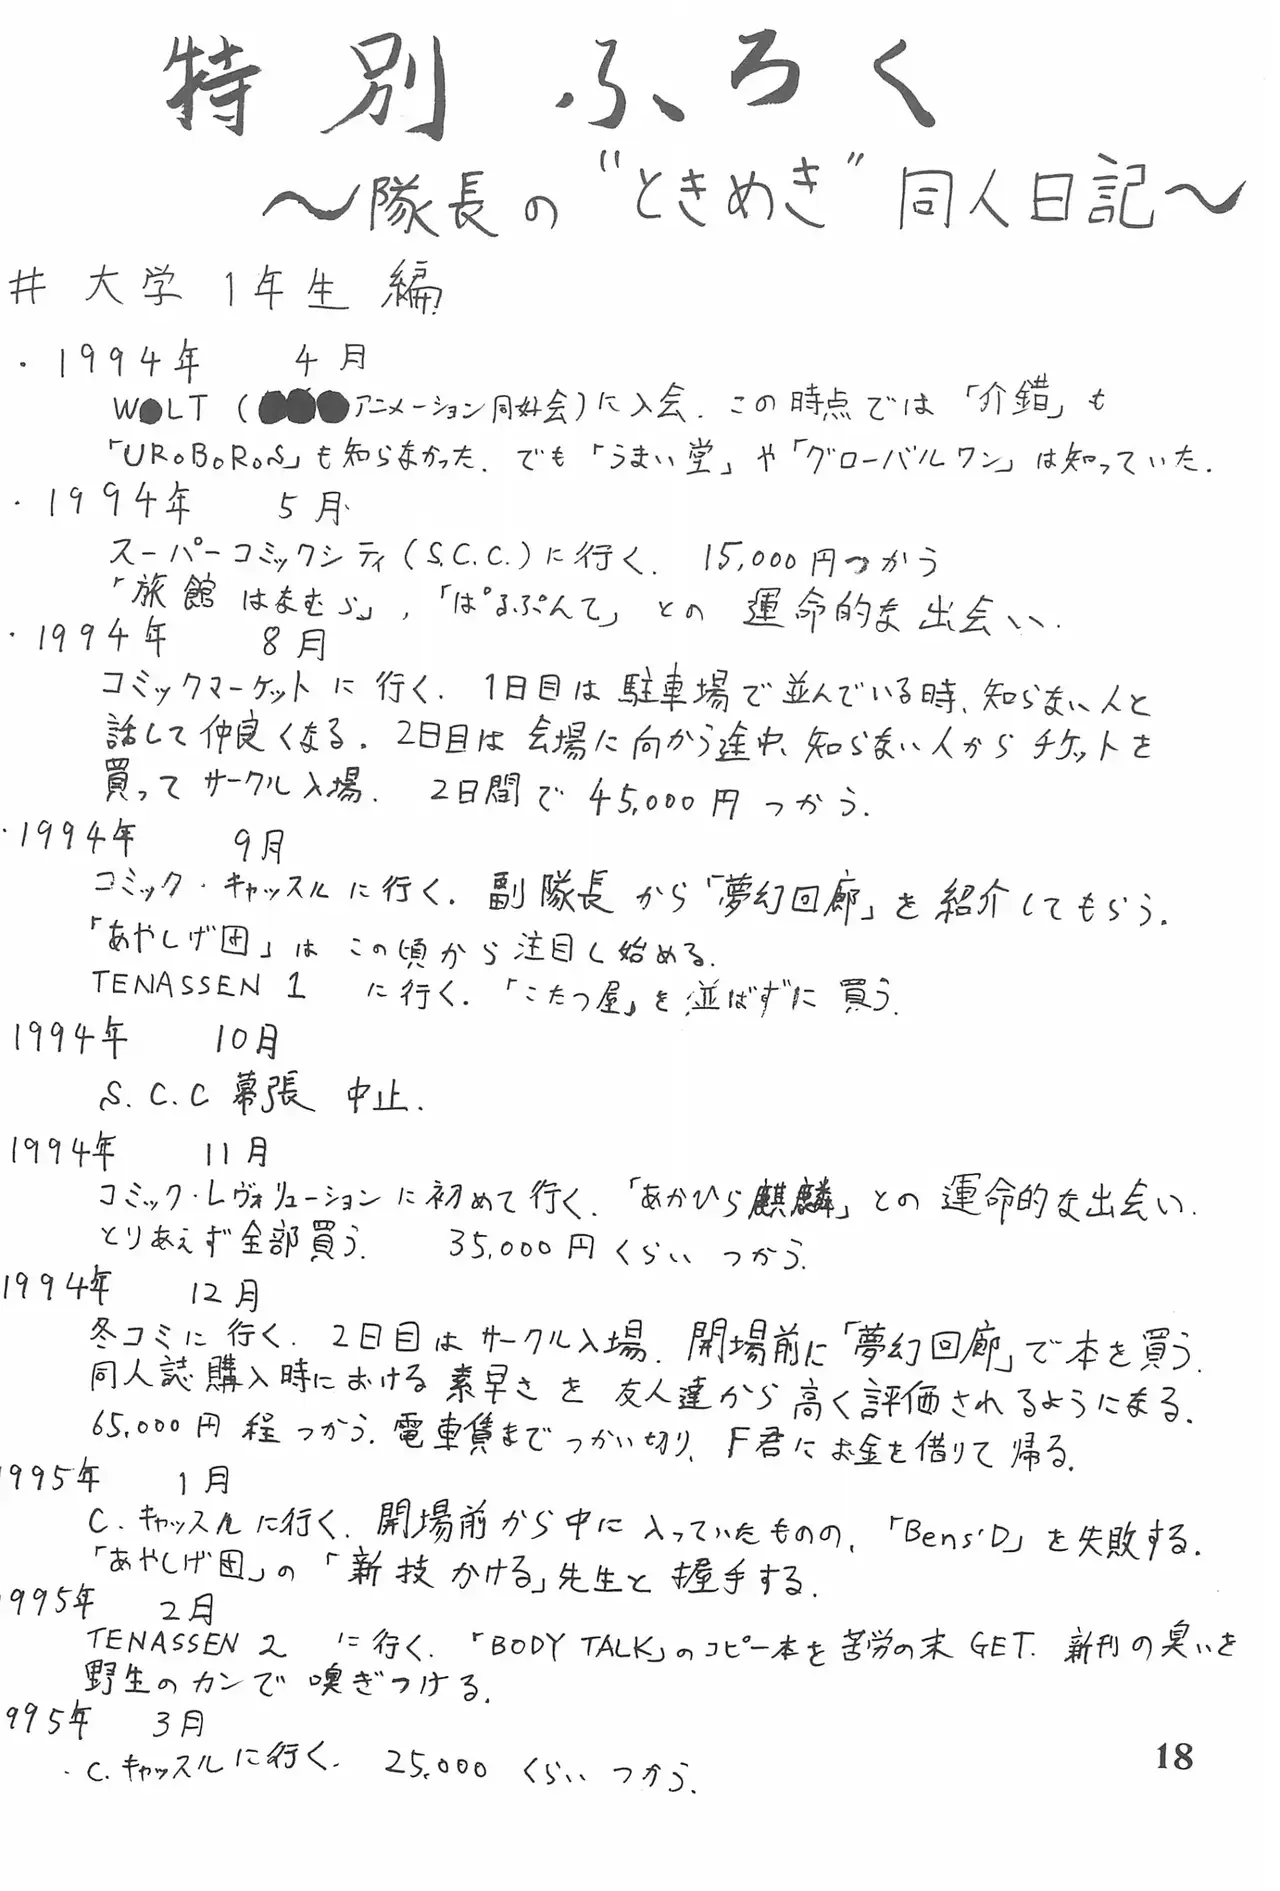 特別ふろく
～隊長の"ときめき"同人日記～
# 大学1年生編
・1994年 4月
W●LT (●●●アニメーション同好会)に入会. この時点では「介錯」も
「UROBOROS」も知らなかった. でも「うまい堂」や「グローバルワン」は知っていた.
・1994年 5月
スーパーコミックシティ(S.C.C.)に行く. 15,000円つかう
「旅館はなむら」,「ぱるぷんて」との 運命的な出会い.
・1994年 8月
コミックマーケットに行く. 1日目は駐車場で並んでいる時、知らない人と
話して仲良くなる. 2日目は会場に向かう途中、知らない人からチケットを
買ってサークル入場. 2日間で45,000円つかう.
・1994年 9月
コミック・キャッスルに行く. 副隊長から「夢幻回廊」を紹介してもらう.
「あやしげ団」はこの頃から注目し始める.
TENASSEN 1 に行く.「こたつ屋」を並ばずに買う.
1994年 10月
S.C.C幕張 中止.
1994年 11月
コミック・レヴォリューションに初めて行く.「あかひら麒麟」との運命的な出会い.
とりあえず全部買う. 35,000円くらいつかう.
1994年 12月
冬コミに行く. 2日目はサークル入場. 開場前に「夢幻回廊」で本を買う.
同人誌購入時における素早さを友人達から高く評価されるようになる.
65,000円程つかう. 電車賃までつかい切り、F君にお金を借りて帰る.
1995年 1月
C.キャッスルに行く. 開場前から中に入っていたものの、「Bens'D」を失敗する.
「あやしげ団」の「新技かける」先生と握手する.
1995年 2月
TENASSEN 2 に行く.「BODY TALK」のコピー本を苦労の末GET. 新刊の臭いを
野生のカンで嗅ぎつける.
995年 3月
・C.キャッスルに行く. 25,000くらいつかう.
18